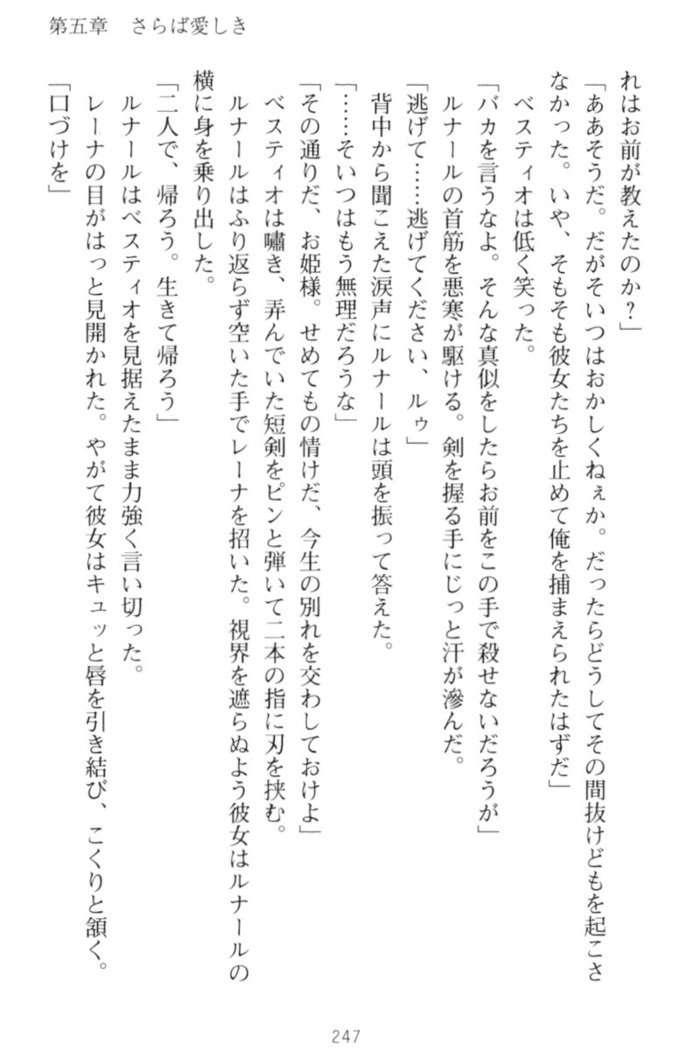 第五章　さらば愛しき
れはお前が教えたのか？」
「ああそうだ。だがそいつはおかしくねぇか。だったらどうしてその間抜けどもを起こさ
なかった。いや、そもそも彼女たちを止めて俺を捕まえられたはずだ」
　ベスティオは低く笑った。
「バカを言うなよ。そんな真似をしたらお前をこの手で殺せないだろうが」
　ルナールの首筋を悪寒が駆ける。剣を握る手にじっと汗が滲んだ。
「逃げて……逃げてください、ルゥ」
　背中から聞こえた涙声にルナールは頭を振って答えた。
「……そいつはもう無理だろうな」
「その通りだ、お姫様。せめてもの情けだ、今生の別れを交わしておけよ」
　ベスティオは嘯き、弄んでいた短剣をピンと弾いて二本の指に刃を挟む。
　ルナールはふり返らず空いた手でレーナを招いた。視界を遮らぬよう彼女はルナールの
横に身を乗り出した。
「二人で、帰ろう。生きて帰ろう」
　ルナールはベスティオを見据えたまま力強く言い切った。
　レーナの目がはっと見開かれた。やがて彼女はキュッと唇を引き結び、こくりと頷く。
「口づけを」
247